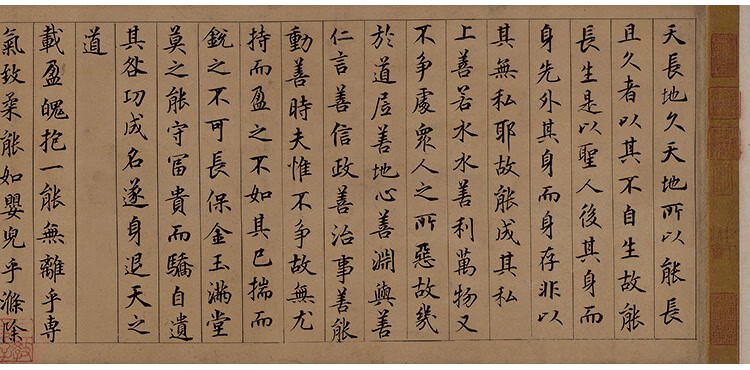 天長地久天地所以能長
且久者以其不自生故能
長生是以聖人後其身而
身先外其身而身存非以
其無私耶故能成其私
上善若水水善利萬物又
不爭處衆人之所惡故幾
於道居善地心善淵與善
仁言善信政善治事善能
動善時夫惟不爭故無尤
持而盈之不如其已揣而
銳之不可長保金玉滿堂
莫之能守冨貴而驕自遺
其咎功成名遂身退天之
道
載盈魄抱一能無離乎専
氣致柔能如嬰兒乎滌除